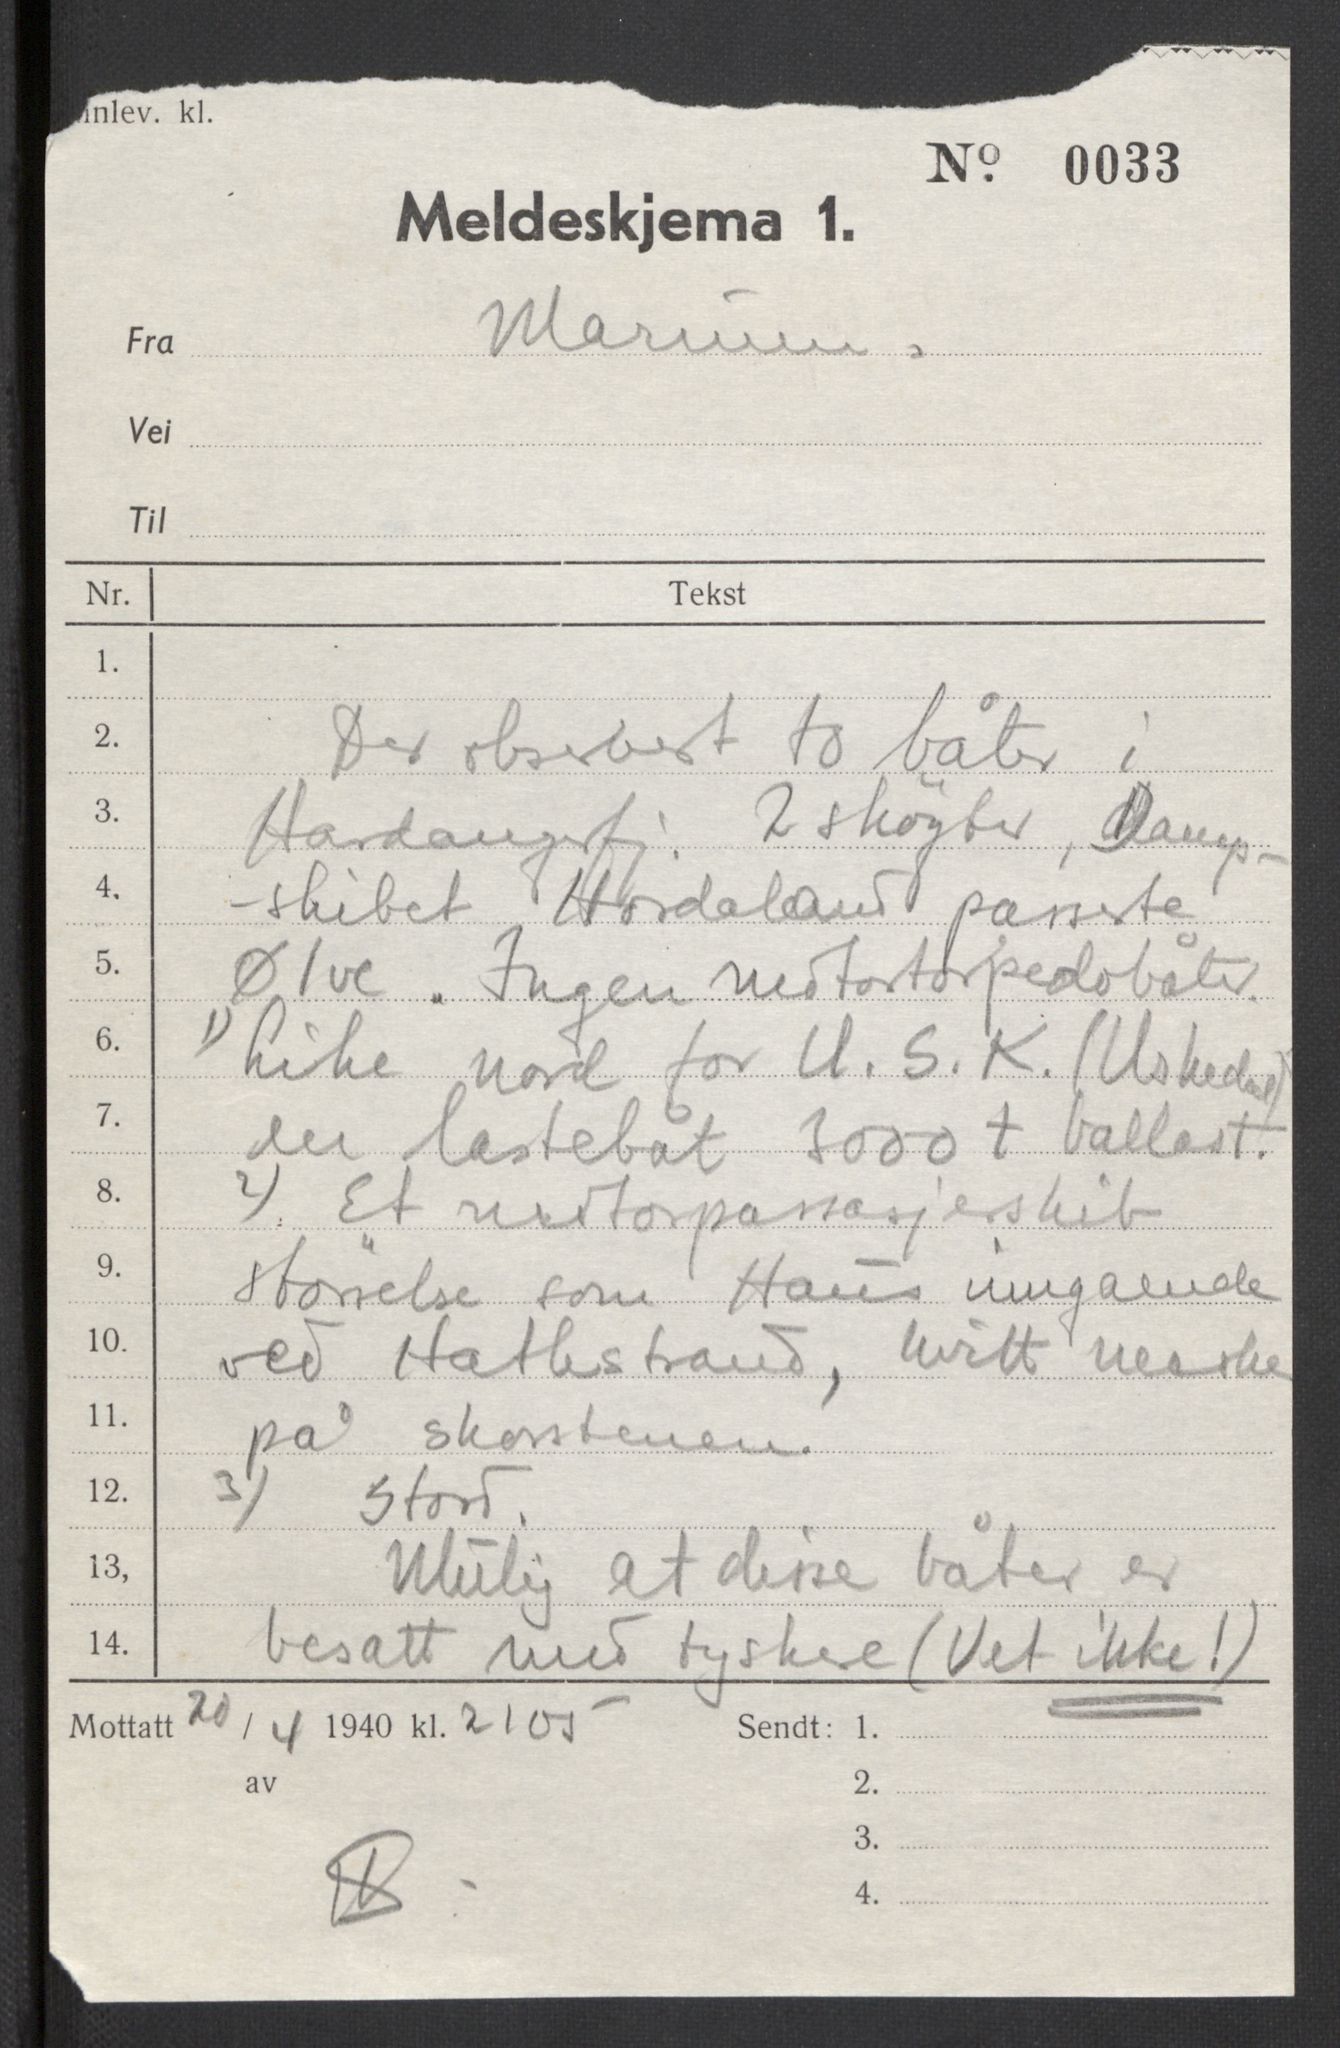 Innlev. kl.
No. 0033
Meldeskjema 1.
Fra Marinen.
Vei
Til
Nr. Tekst
1.
2. Der observert to båter i
3. Hardangerfj. 2 sköyter, Damp-
4. -skibet Hordaland passerte
5. Ølve. Ingen motortorpedobåter.
6. 1) Like nord for U.S.K. (Uskedal)
7. en lastebåt 3000 t ballast.
8. 2) Et motorpassasjerskib
9. störrelse som Haus inngaende
10. ved Hatlestrand, hvitt merke
11. på skorstenen.
12. 3) Stord.
13, Mulig at disse båter er
14. besatt med tyskere (Vet ikke!)
Mottatt 20/4 1940 kl. 2105 Sendt: 1.
av 2.
3.
4.